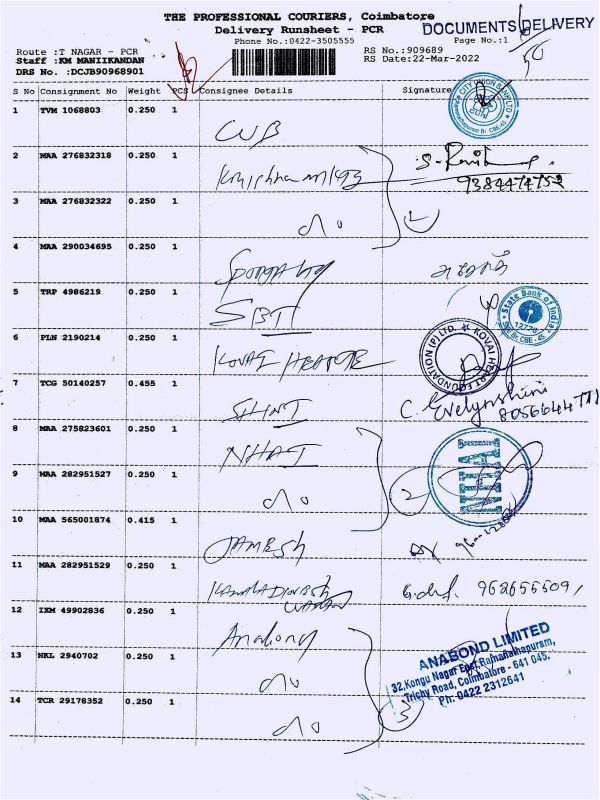 THE PROFESSIONAL COURIERS, Coimbatore
Delivery Runsheet - PCR
DOCUMENTS DELIVERY
Phone No.:0422-3505555
Page No.:1
50
Route :T NAGAR - PCR
RS No.:909689
Staff :KM MANIIKANDAN
RS Date:22-Mar-2022
DRS No. :DCJB90968901
S No Consignment No Weight PCS Consignee Details Signature
1 TVM 1068803 0.250 1 CUB
CITY UNION BANK LTD
2 MAA 276832318 0.250 1
9384474752
3 MAA 276832322 0.250 1
4 MAA 290034695 0.250 1
5 TRP 4986219 0.250 1 SBI
State Bank of India
6 PLN 2190214 0.250 1 KOVAI HEART
KOVAI HEART FOUNDATION (P) LTD.
7 TCG 50140257 0.455 1
C. Evelynshini
8 MAA 275823601 0.250 1 NHAI
NHAI
9 MAA 282951527 0.250 1
2
10 MAA 565001874 0.415 1
11 MAA 282951529 0.250 1
12 IXM 49902836 0.250 1 Anabond
ANABOND LIMITED
32,Kongu Nagar East,Ramanathapuram,
Trichy Road, Coimbatore - 641 045.
Ph: 0422 2312641
13 NKL 2940702 0.250 1
14 TCR 29178352 0.250 1
3